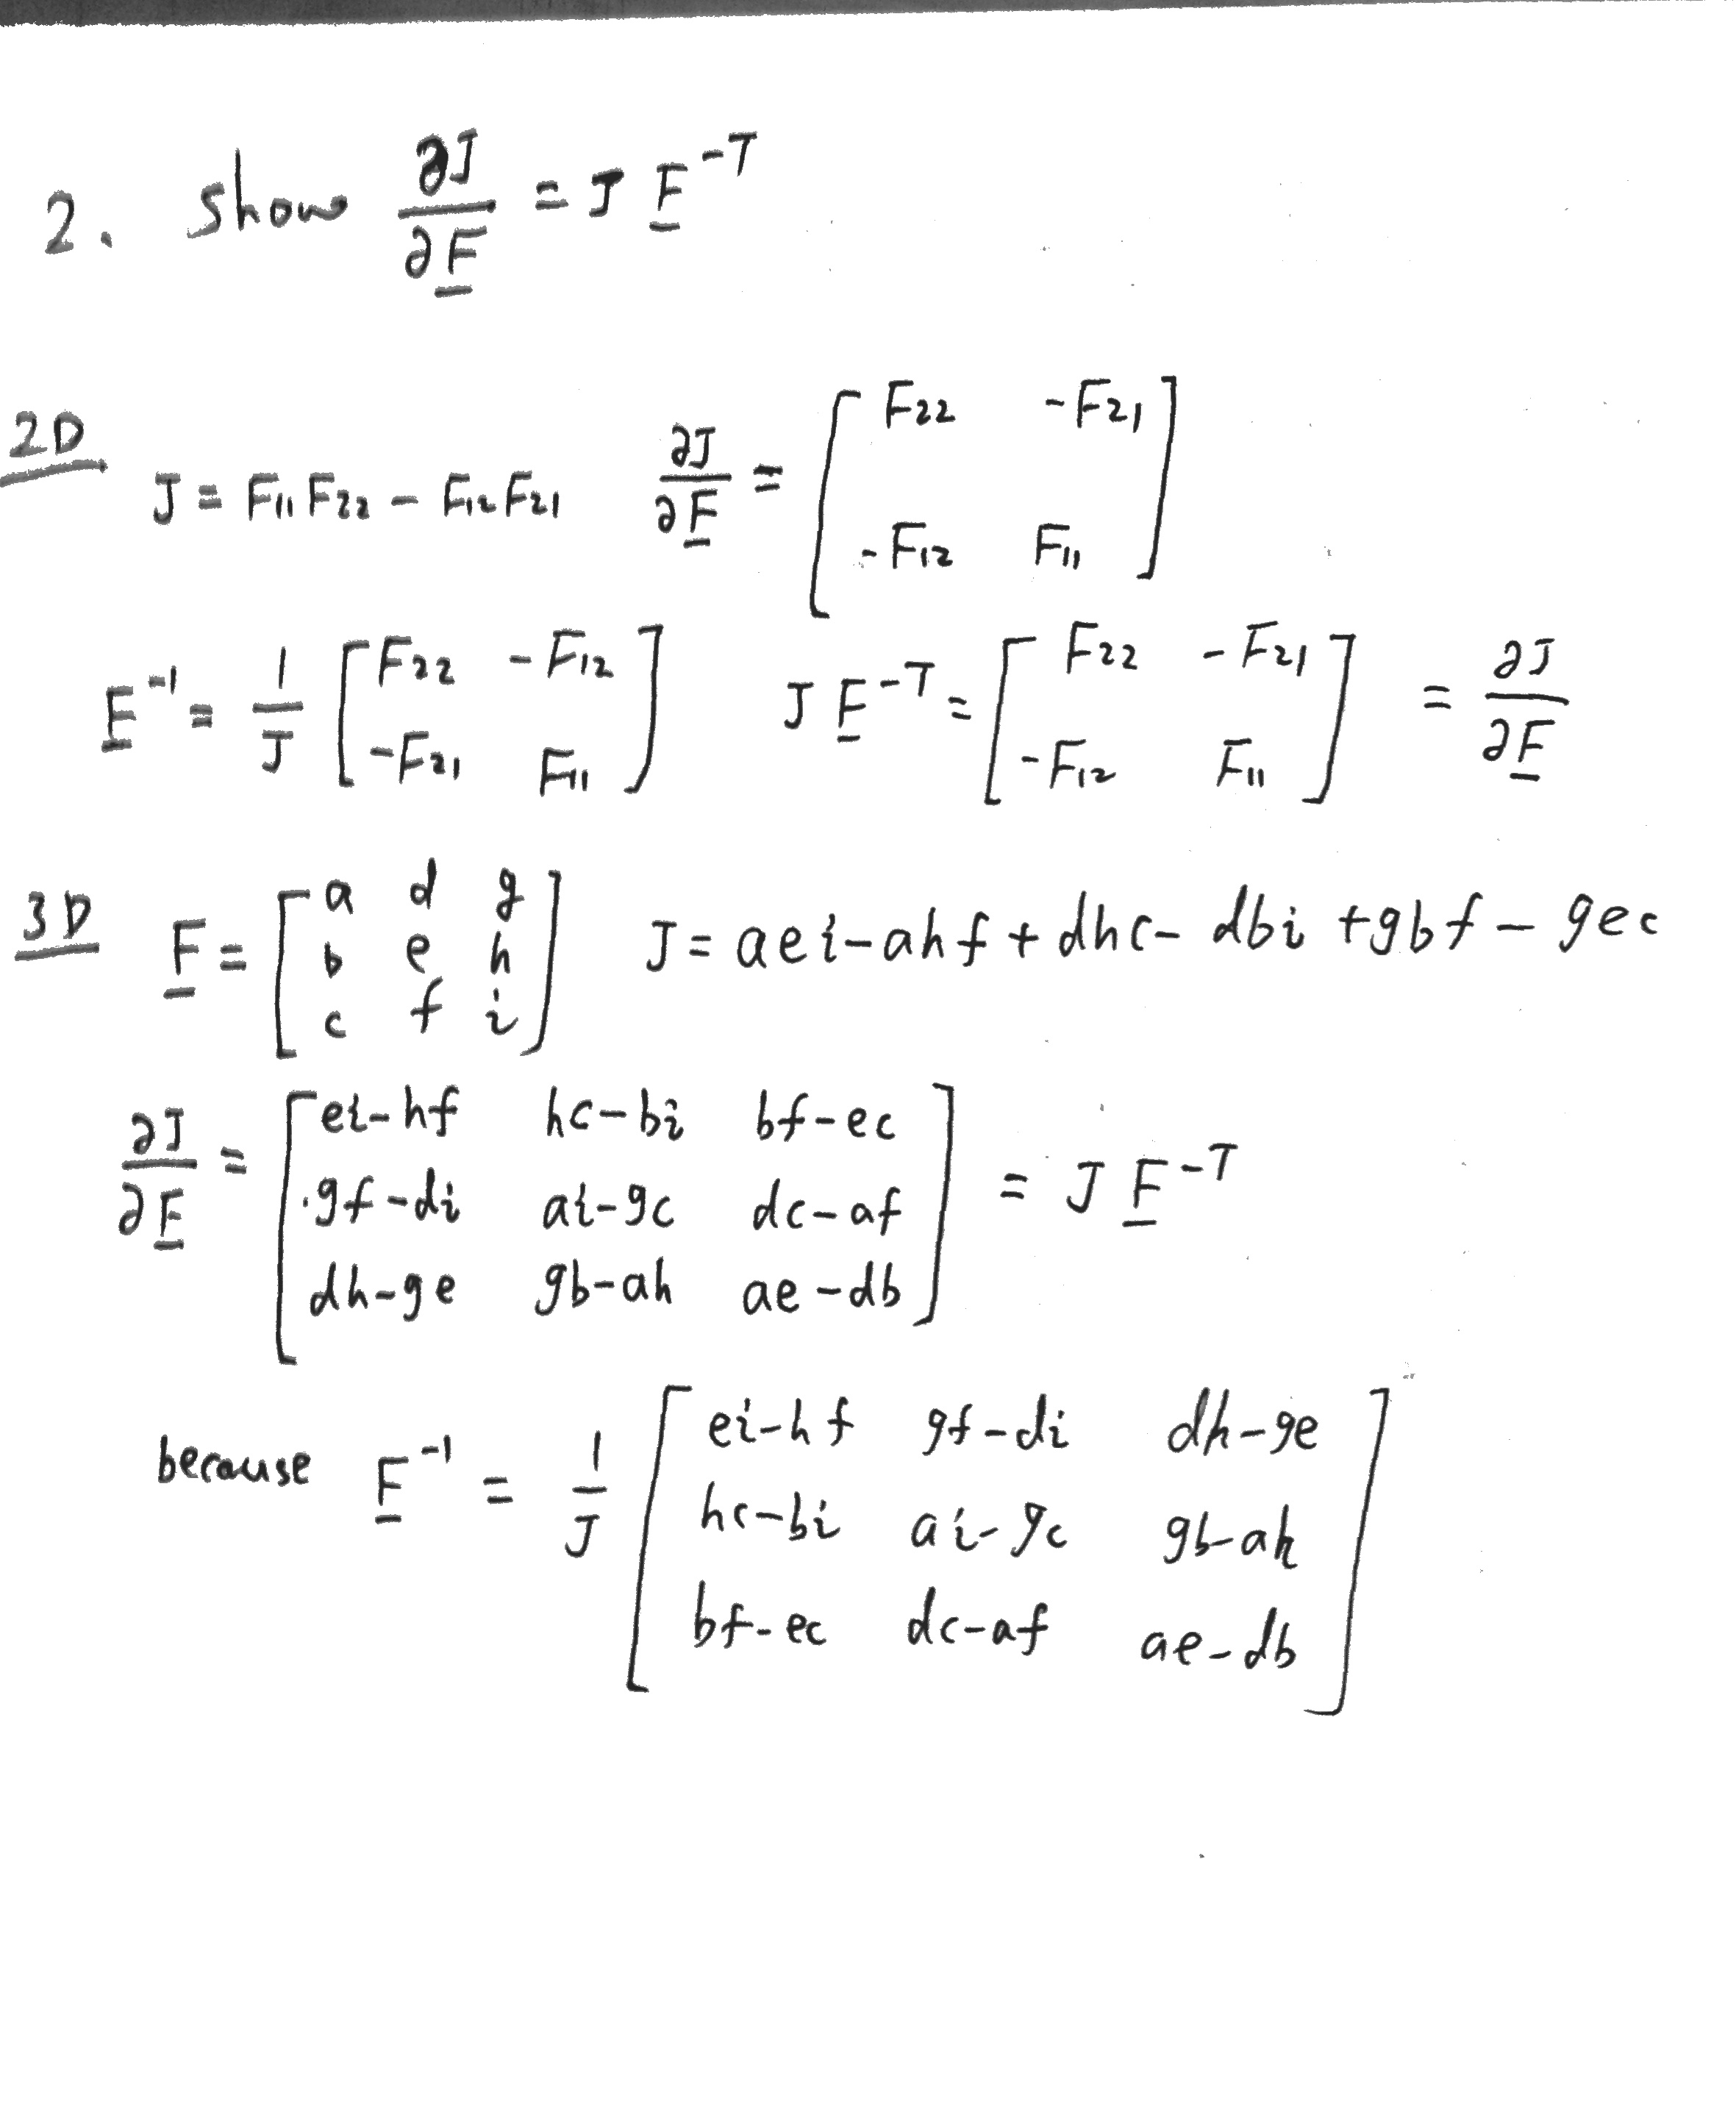 2. show ∂J/∂F = J F^-T
2D
J = F11 F22 - F12 F21 ∂J/∂F = [F22 -F21; -F12 F11]
F^-1 = 1/J [F22 -F12; -F21 F11] J F^-T = [F22 -F21; -F12 F11] = ∂J/∂F
3D F = [a d g; b e h; c f i] J = aei - ahf + dhc - dbi + gbf - gec
∂J/∂F = [ei-hf hc-bi bf-ec; gf-di ai-gc dc-af; dh-ge gb-ah ae-db] = J F^-T
because F^-1 = 1/J [ei-hf gf-di dh-ge; hc-bi ai-gc gb-ah; bf-ec dc-af ae-db]